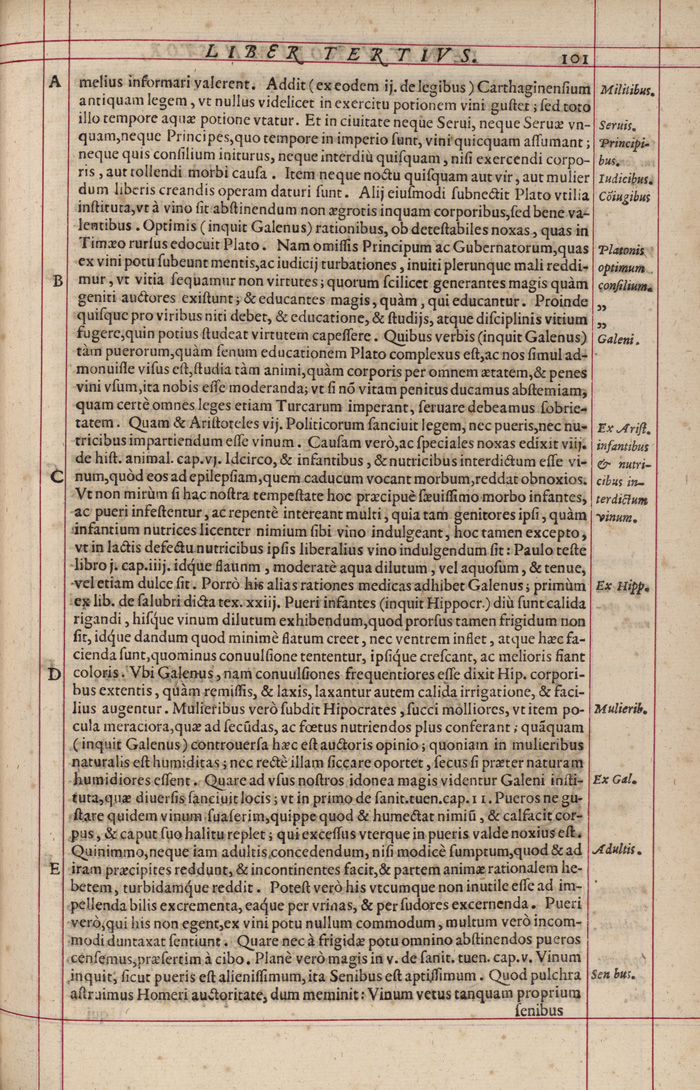 LIBER TERTIVS. 101
A melius informari valerent. Addit (ex eodem ij. de legibus) Carthaginensium Militibus.
antiquam legem, vt nullus videlicet in exercitu potionem vini gustet; sed toto
illo tempore aquæ potione vtatur. Et in ciuitate neque Serui, neque Seruæ vn- Seruis.
quam, neque Principes, quo tempore in imperio sunt, vini quicquam assumant; Principi-
neque quis consilium initurus, neque interdiù quisquam, nisi exercendi corpo- bus.
ris, aut tollendi morbi causa. Item neque noctu quisquam aut vir, aut mulier Iudicibus.
dum liberis creandis operam daturi sunt. Alij eiusmodi subnectit Plato vtilia Cõiugibus
instituta, vt à vino sit abstinendum non ægrotis inquam corporibus, sed bene va-
lentibus. Optimis (inquit Galenus) rationibus, ob detestabiles noxas, quas in
Timæo rursus edocuit Plato. Nam omissis Principum ac Gubernatorum, quas Platonis
ex vini potu subeunt mentis, ac iudicij turbationes, inuiti plerunque mali reddi- optimum
B mur, vt vitia sequamur non virtutes; quorum scilicet generantes magis quàm consilium.
geniti auctores existunt; & educantes magis, quàm, qui educantur. Proinde „
quisque pro viribus niti debet, & educatione, & studijs, atque disciplinis vitium „
fugere, quin potius studeat virtutem capessere. Quibus verbis (inquit Galenus) Galeni.
tàm puerorum, quàm senum educationem Plato complexus est, ac nos simul ad-
monuisse visus est, studia tàm animi, quàm corporis per omnem ætatem, & penes
vini vsum, ita nobis esse moderanda; vt si nõ vitam penitus ducamus abstemiam,
quam certè omnes leges etiam Turcarum imperant, seruare debeamus sobrie-
tatem. Quam & Aristoteles vij. Politicorum sanciuit legem, nec pueris, nec nu- Ex Arist.
tricibus impartiendum esse vinum. Causam verò, ac speciales noxas edixit viij. infantibus
de hist. animal. cap. vj. Idcirco, & infantibus, & nutricibus interdictum esse vi- & nutri-
C num, quòd eos ad epilepsiam, quem caducum vocant morbum, reddat obnoxios. cibus in-
Vt non mirùm si hac nostra tempestate hoc præcipuè sæuissimo morbo infantes, terdictum
ac pueri infestentur, ac repentè intereant multi, quia tam genitores ipsi, quàm vinum.
infantium nutrices licenter nimium sibi vino indulgeant, hoc tamen excepto,
vt in lactis defectu nutricibus ipsis liberalius vino indulgendum sit: Paulo teste
libro j. cap. iiij. idque flauum, moderatè aqua dilutum, vel aquosum, & tenue,
vel etiam dulce sit. Porrò his alias rationes medicas adhibet Galenus; primùm Ex Hipp.
ex lib. de salubri dicta tex. xxiij. Pueri infantes (inquit Hippocr.) diù sunt calida
rigandi, hisque vinum dilutum exhibendum, quod prorsus tamen frigidum non
sit, idque dandum quod minimè flatum creet, nec ventrem inflet, atque hæc fa-
cienda sunt, quominus conuulsione tententur, ipsique crescant, ac melioris fiant
D coloris. Vbi Galenus, nam conuulsiones frequentiores esse dixit Hip. corpori-
bus extentis, quàm remissis, & laxis, laxantur autem calida irrigatione, & faci-
lius augentur. Mulieribus verò subdit Hipocrates, succi molliores, vt item po- Mulierib.
cula meraciora, quæ ad secũdas, ac fœtus nutriendos plus conferant; quãquam
(inquit Galenus) controuersa hæc est auctoris opinio; quoniam in mulieribus
naturalis est humiditas; nec rectè illam siccare oportet, secus si præter naturam
humidiores essent. Quare ad vsus nostros idonea magis videntur Galeni insti- Ex Gal.
tuta, quæ diuersis sanciuit locis; vt in primo de sanit. tuen. cap. 11. Pueros ne gu-
stare quidem vinum suaserim, quippe quod & humectat nimiũ, & calfacit cor-
pus, & caput suo halitu replet; qui excessus vterque in pueris valde noxius est.
Quinimmo, neque iam adultis concedendum, nisi modicè sumptum, quod & ad Adultis.
E iram præcipites reddunt, & incontinentes facit, & partem animæ rationalem he-
betem, turbidamque reddit. Potest verò his vtcumque non inutile esse ad im-
pellenda bilis excrementa, eaque per vrinas, & per sudores excernenda. Pueri
verò, qui his non egent, ex vini potu nullum commodum, multum verò incom-
modi duntaxat sentiunt. Quare nec à frigidæ potu omnino abstinendos pueros
censemus, præsertim à cibo. Planè verò magis in v. de sanit. tuen. cap. v. Vinum
inquit, sicut pueris est alienissimum, ita Senibus est aptissimum. Quod pulchra Senibus.
astruimus Homeri auctoritate, dum meminit: Vinum vetus tanquam proprium
senibus